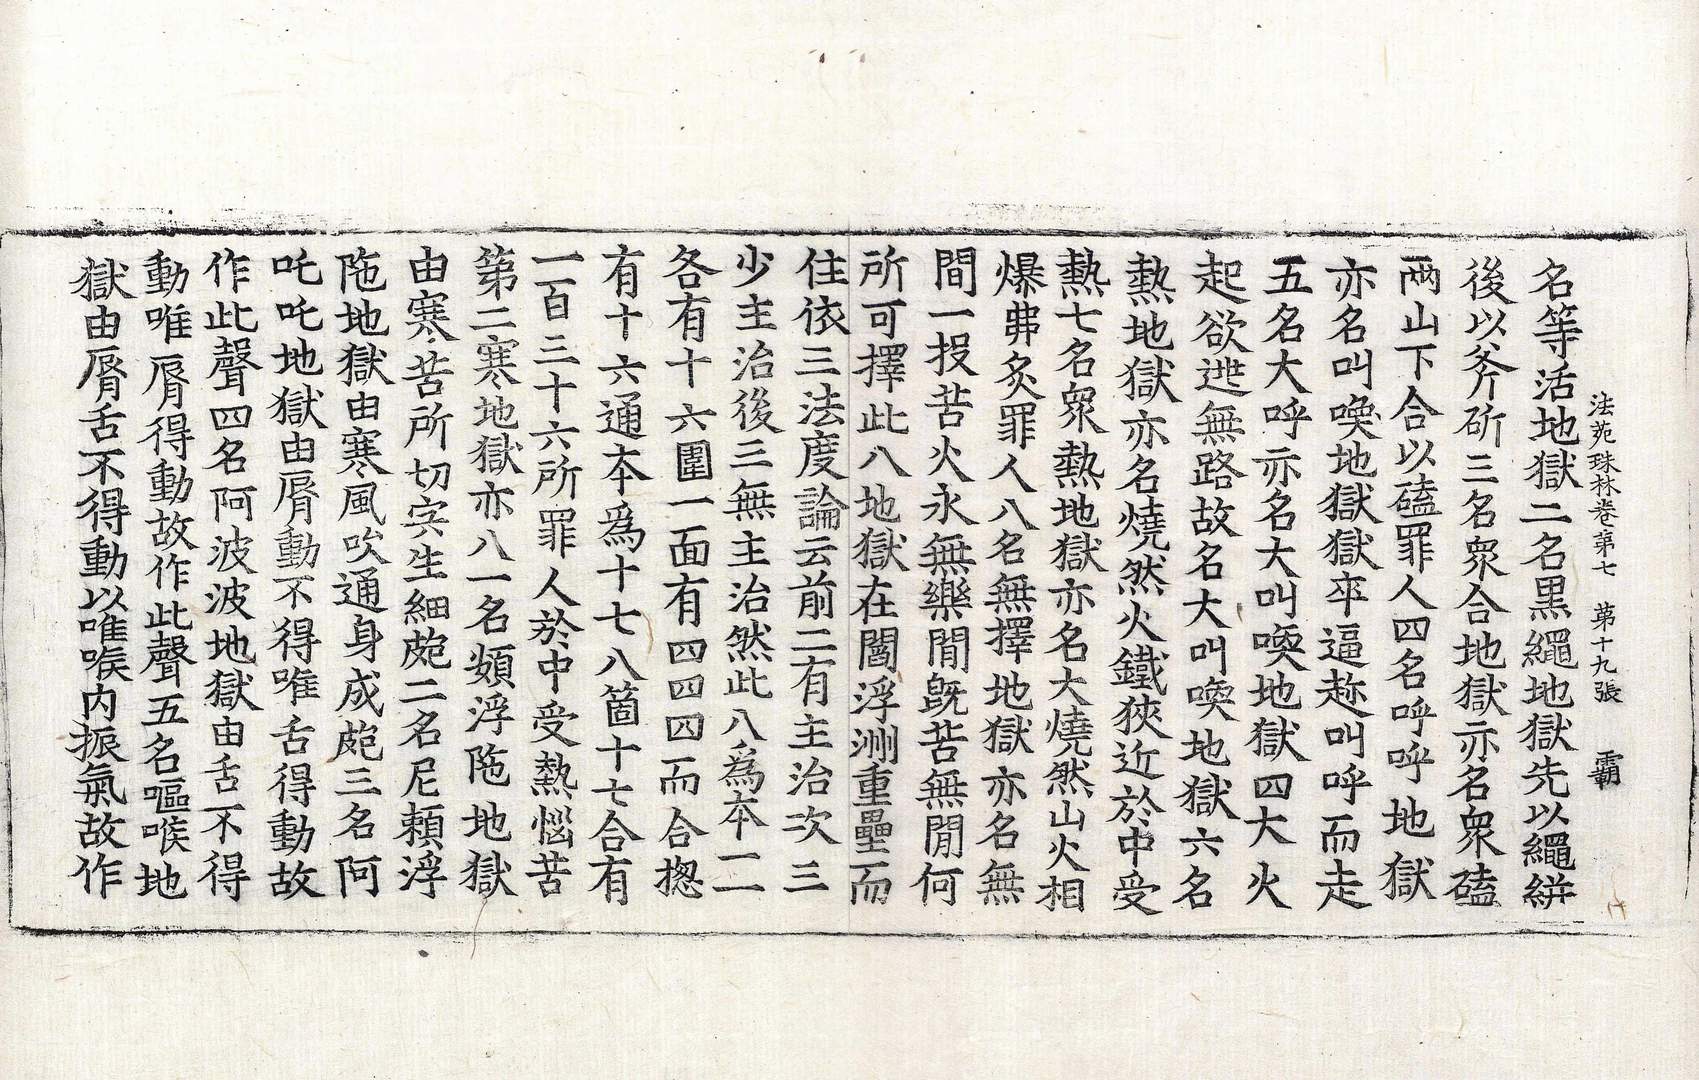 法苑珠林卷第七 第十九張 霸
名等活地獄二名黑繩地獄先以繩絣
後以斧斫三名衆合地獄亦名衆磕
兩山下合以磕罪人四名呼呼地獄
亦名叫喚地獄獄卒逼趂叫呼而走
五名大呼亦名大叫喚地獄四大火
起欲迯無路故名大叫喚地獄六名
熱地獄亦名燒然火鐵狹近於中受
熱七名衆熱地獄亦名大燒然山火相
爆丳炙罪人八名無擇地獄亦名無
間一投苦火永無樂間旣苦無間何
所可擇此八地獄在閻浮洲重壘而
住依三法度論云前二有主治次三
少主治後三無主治然此八爲本一一
各有十六圍一面有四四四而合揔
有十六通本爲十七八箇十七合有
一百三十六所罪人於中受熱惱苦
第二寒地獄亦八一名頞浮陁地獄
由寒苦所切宍生細皰二名尼賴浮
陁地獄由寒風吹通身成皰三名阿
吒吒地獄由脣動不得唯舌得動故
作此聲四名阿波波地獄由舌不得
動唯脣得動故作此聲五名嘔喉地
獄由脣舌不得動以唯喉內振氣故作